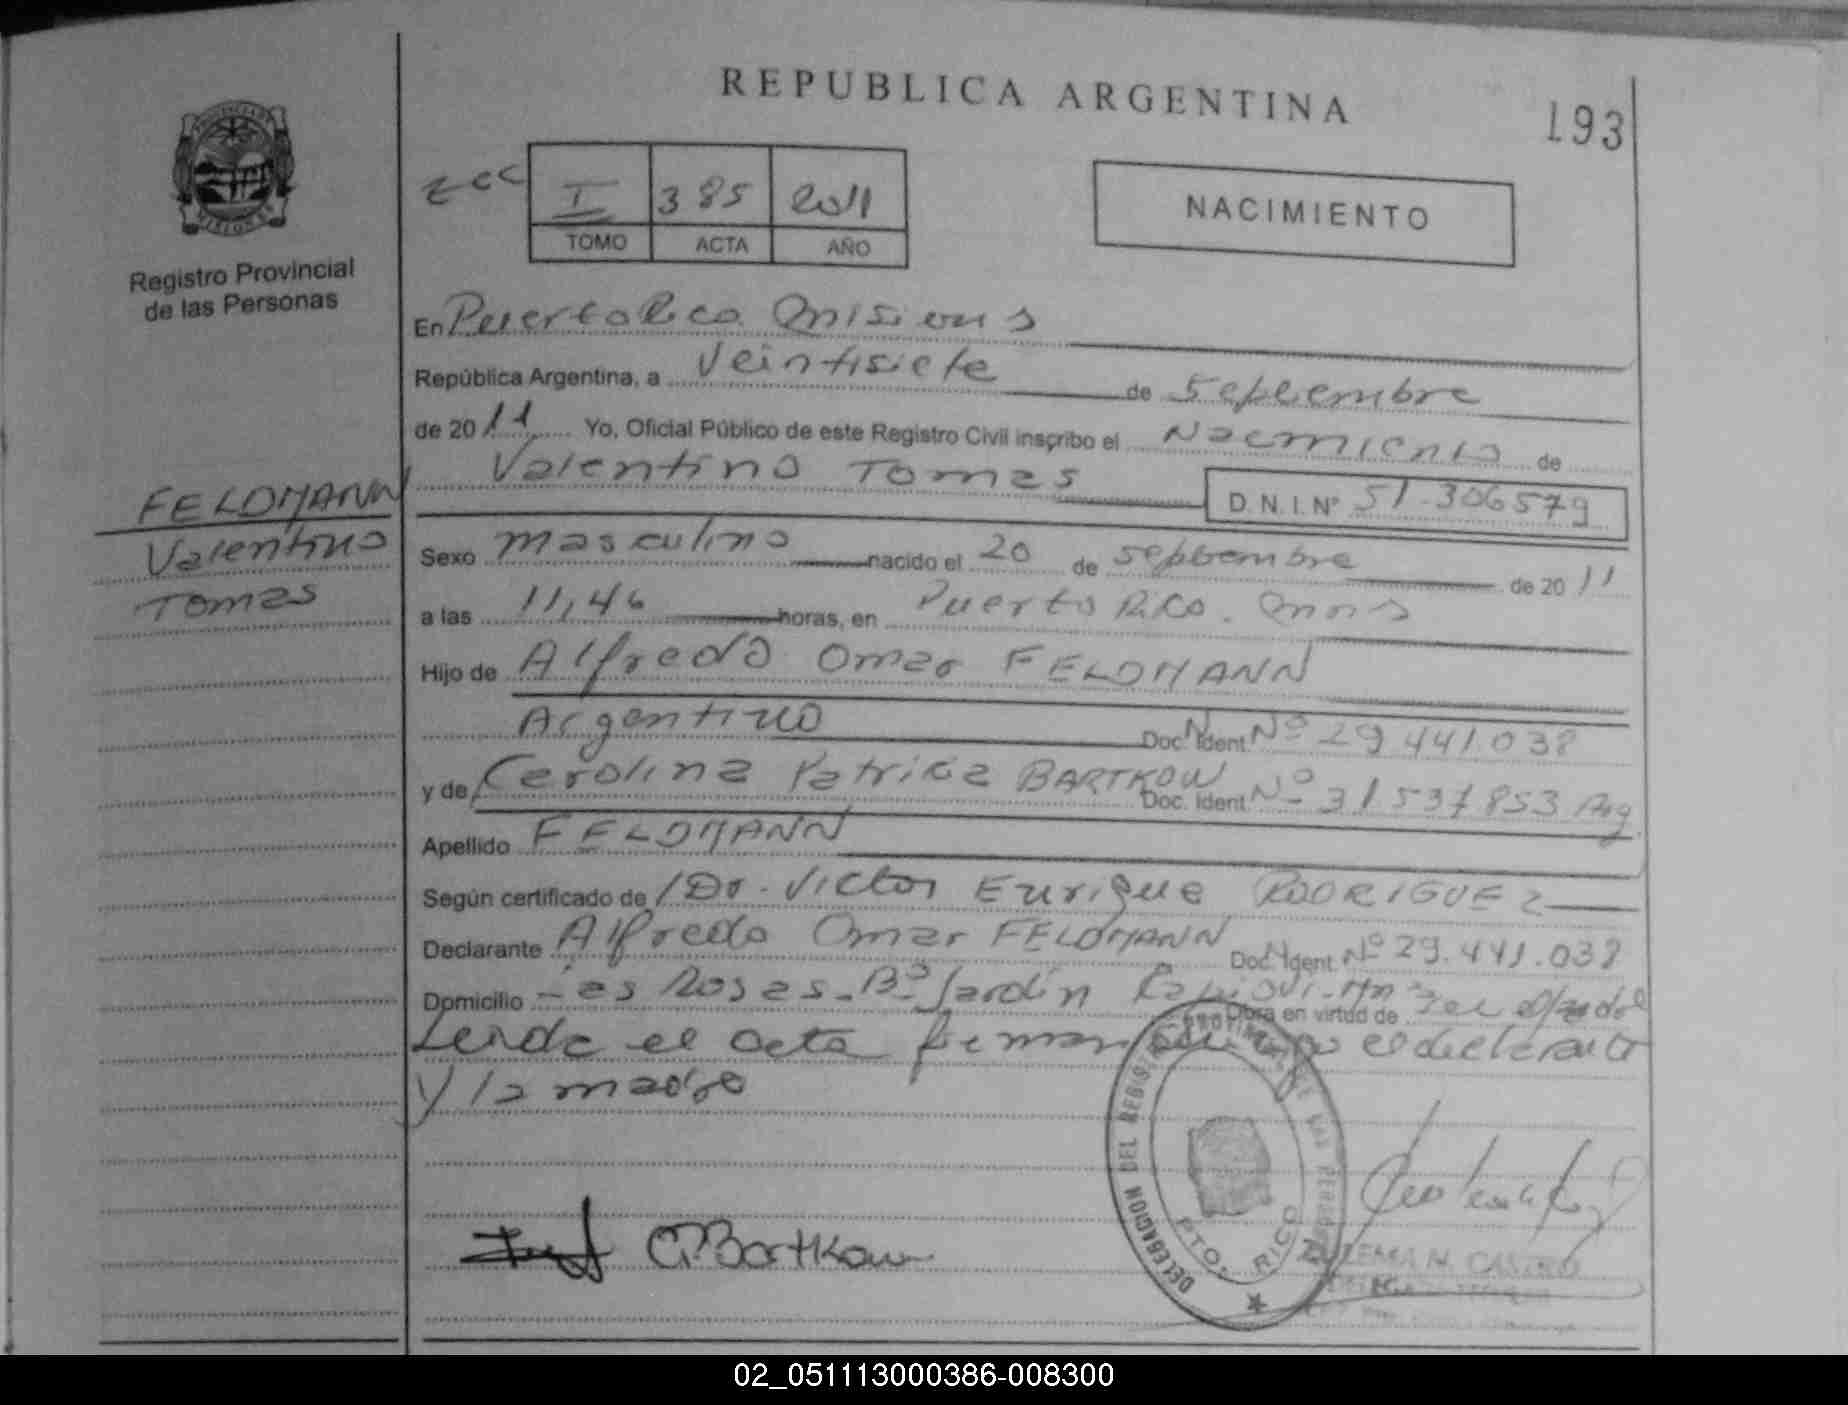 REPUBLICA ARGENTINA
193
PROVINCIA DE MISIONES
Registro Provincial
de las Personas
I 385 2011
TOMO ACTA AÑO
NACIMIENTO
En Puerto Rico Misiones
República Argentina, a Veintisiete de Septiembre
de 20 11 Yo, Oficial Público de este Registro Civil inscribo el Nacimiento de
Valentino Tomas D. N. I. Nº 51.306579
FELDMANN
Valentino
Tomas
Sexo masculino nacido el 20 de septiembre de 20 11
a las 11,46 horas, en Puerto Rico. Mnes
Hijo de Alfredo Omar FELDMANN
Argentino Doc. Ident. Nº 29.441.038
y de Carolina Patricia BARTKOW Doc. Ident. Nº 31537853 Arg
Apellido FELDMANN
Según certificado de Dr. Victor Enrique RODRIGUEZ
Declarante Alfredo Omar FELDMANN Doc. Ident. Nº 29.441.038
Domicilio Las Rosas Bº Jardín Obra en virtud de
Leida el acta firman el declarante
y la madre
DELEGACION DEL REGISTRO PROVINCIAL DE LAS PERSONAS
PTO. RICO
CBartkow
ZULEMA N. CASTRO
02_051113000386-008300